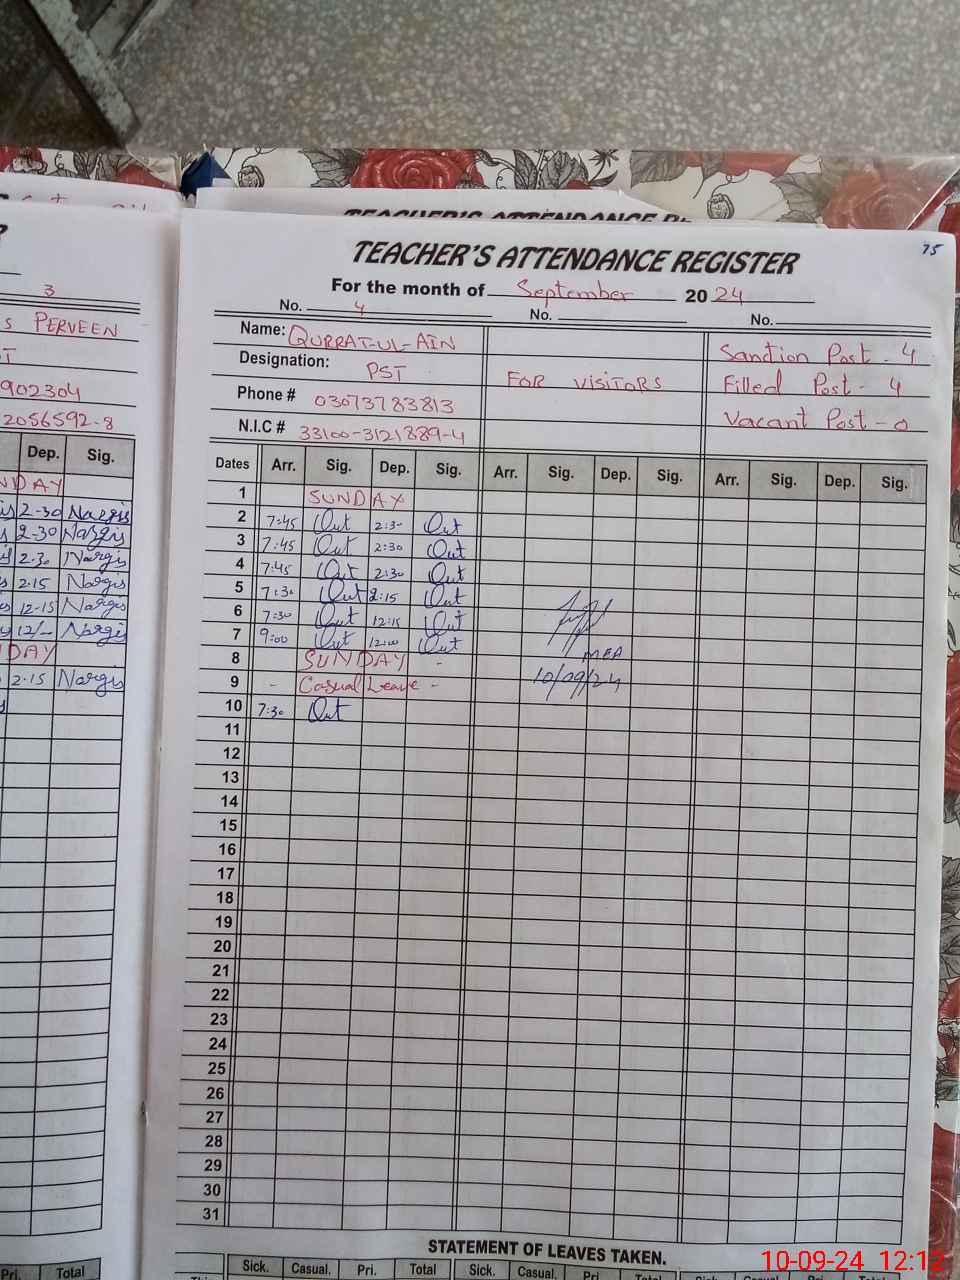 TEACHER'S ATTENDANCE RE
TEACHER'S ATTENDANCE REGISTER
75
For the month of September 2024
No. 4 No. No.
Name: QURRAT-UL-AIN
Designation: PST
Phone # 03073783813
N.I.C # 33100-3121889-4
FOR VISITORS
Sanction Post - 4
Filled Post - 4
Vacant Post - 0
Dates Arr. Sig. Dep. Sig. Arr. Sig. Dep. Sig. Arr. Sig. Dep. Sig.
1 SUNDAY
2 7:45 2:30
3 7:45 2:30
4 7:45 2:30
5 7:30 2:15
6 7:30 12:15
7 9:00 12:00
MEA
8 SUNDAY -
9 - Casual Leave -
10/09/24
10 7:30
11
12
13
14
15
16
17
18
19
20
21
22
23
24
25
26
27
28
29
30
31
STATEMENT OF LEAVES TAKEN.
Sick. Casual. Pri. Total Sick. Casual. Pri. Total Sick. Casual. Pri. Total
3
S PERVEEN
902304
2056592-8
Dep. Sig.
NDAY
2-30 Nargis
2-30 Nargis
2.30 Nargis
2.15 Nargis
12-15 Nargis
12/- Nargis
DAY
2.15 Nargis
Pri. Total
10-09-24 12:12